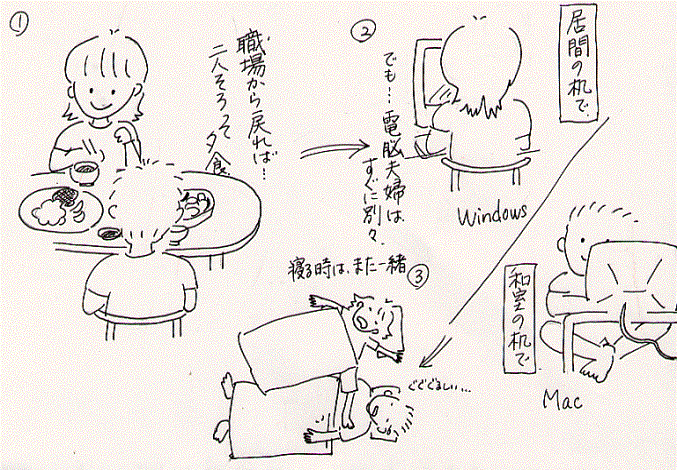 ①
職場から戻れば…
二人そろって夕食
②
でも…電脳夫婦は、
すぐに別々。
居間の机で
Windows
和室の机で
Mac
③
寝る時は、また一緒
ぐぐぐるしい…